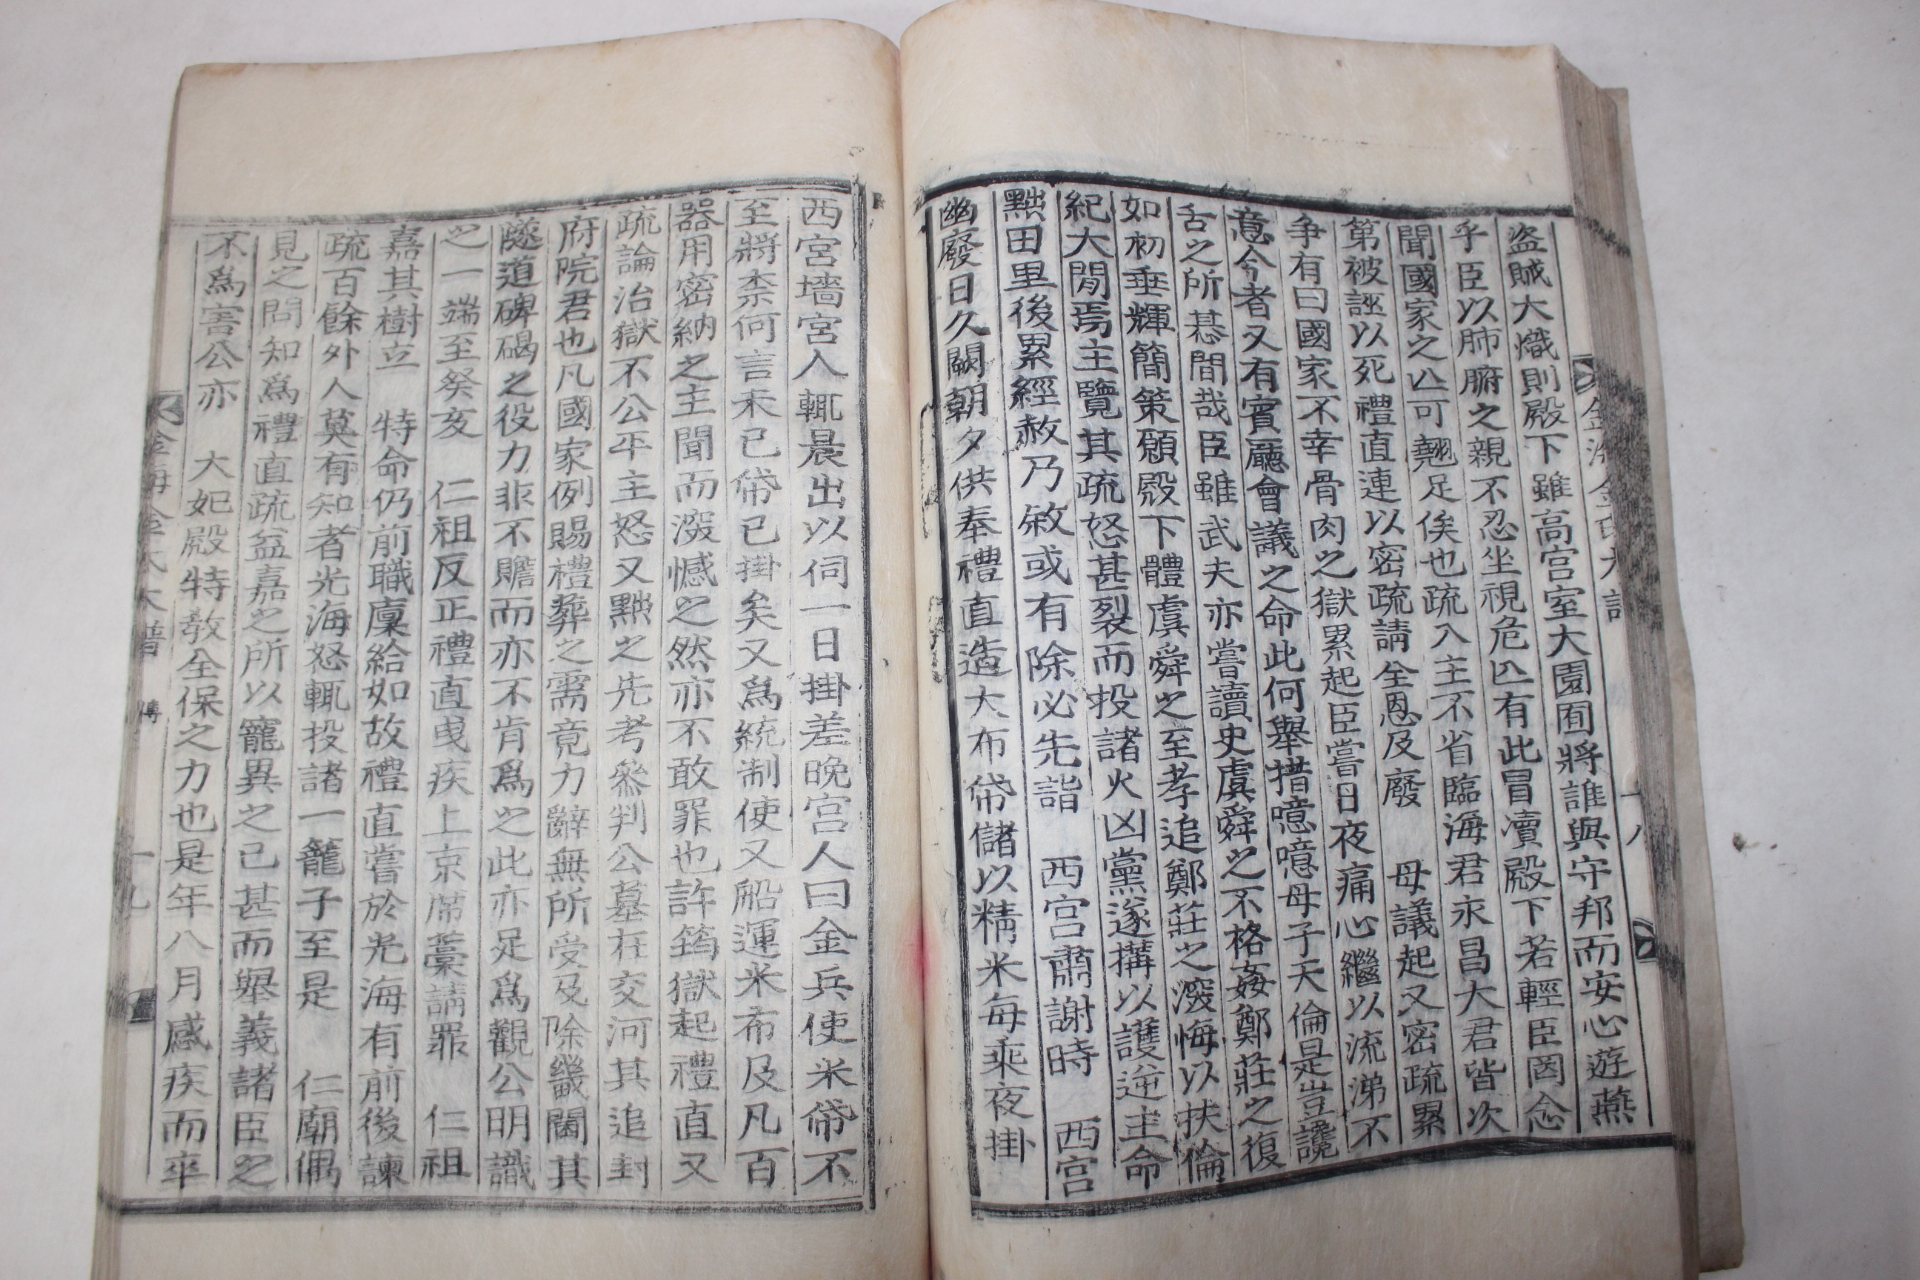 盜賊大熾則殿下雖高宮室大園囿將誰與守邦而安心遊燕
乎臣以肺腑之親不忍坐視危亾有此冒瀆殿下若輕臣罔念
聞國家之亾可翹足俟也疏入主不省臨海君永昌大君皆次
第被誣以死禮直連以密疏請全恩及廢 母議起又密疏累
爭有曰國家不幸骨肉之獄累起臣嘗日夜痛心繼以流涕不
意今者又有賓廳會議之命此何舉措噫噫母子天倫是豈讒
舌之所惎間哉臣雖武夫亦嘗讀史虞舜之不格姦鄭莊之復
如初垂輝簡策願殿下體虞舜之至孝追鄭莊之深悔以扶倫
紀大閒焉主覽其疏怒甚裂而投諸火凶黨遂搆以護逆主命
黜田里後累經赦乃敘或有除必先詣 西宮肅謝時 西宮
幽廢日久闕朝夕供奉禮直造大布帒儲以精米每乘夜掛
西宮墻宮人輒晨出以伺一日掛差晚宮人曰金兵使米帒不
至將柰何言未已帒已掛矣又爲統制使又船運米布及凡百
器用密納之主聞而深憾之然亦不敢罪也許筠獄起禮直又
疏論治獄不公平主怒又黜之先考參判公墓在交河其追封
府院君也凡國家例賜禮葬之需竟力辭無所受及除畿閫其
隧道碑碣之役力非不贍而亦不肯爲之此亦足爲觀公明識
之一端至癸亥 仁祖反正禮直曵疾上京席藁請罪 仁祖
嘉其樹立 特命仍前職廩給如故禮直嘗於光海有前後諫
疏百餘外人莫有知者光海怒輒投諸一籠子至是 仁廟偶
見之問知爲禮直疏益嘉之所以寵異之已甚而舉義諸臣之
不爲害公亦 大妃殿特教全保之力也是年八月感疾而卒
金海金氏大譜
傳
十九
十八